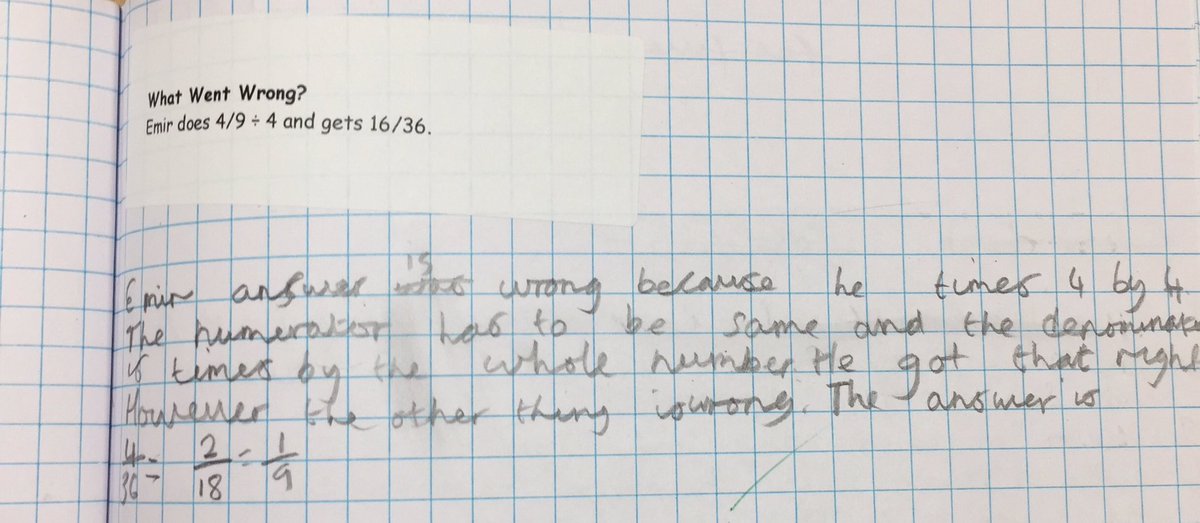 What Went Wrong?
Emir does 4/9 ÷ 4 and gets 16/36.
Emir answer is wrong because he times 4 by 4
The numerator has to be same and the denominato
is times by the whole number. He got that righ
However the other thing is wrong. The answer is
4/36 = 2/18 = 1/9